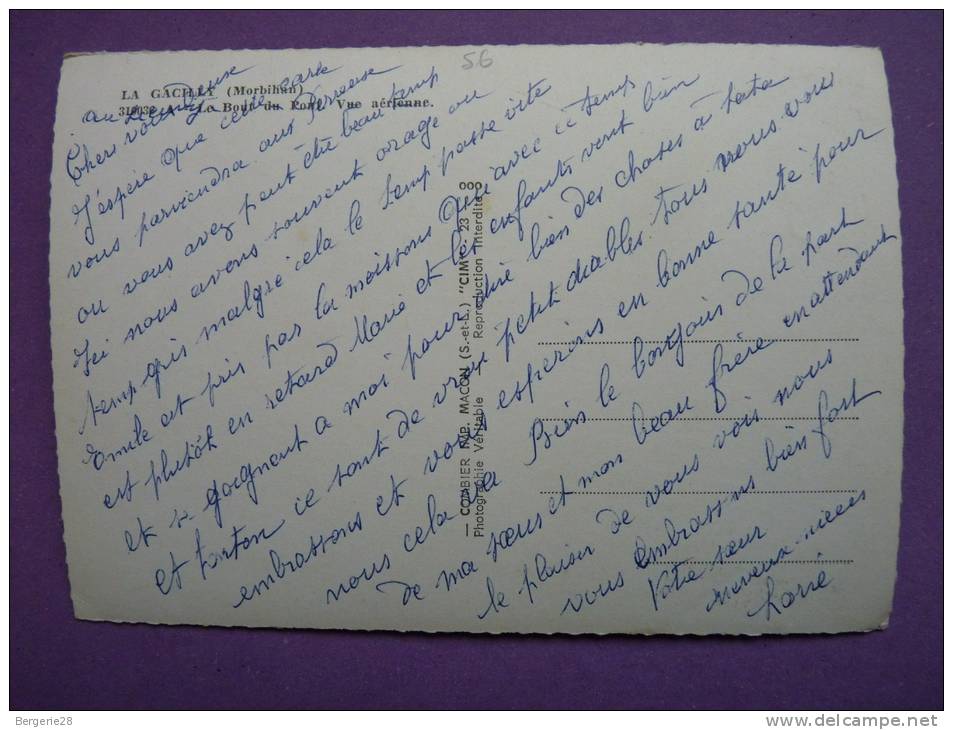 56
LA GACILLY (Morbihan)
Le Bout du Pont. Vue aérienne.
Chers vous deux
J'espère que cette carte
vous parviendra aux
ou vous avez peut être beau temp
Ici nous avons souvent orage ou
temp gris malgré cela le temp passe vite
Emile est pris par la moissons qui avec ce temps
est plutôt en retard Marie et les enfants vont bien
et se joignent a moi pour dire bien des choses a tata
et tonton ce sont de vrai petit diables tous nous vous
embrassons et vous esperons en bonne santé pour
nous cela va Bien le bonjour de la part
de ma sœur et mon beau frère en attendant
le plaisir de vous voir nous
vous embrassons bien fort
Votre sœur
neveux nieces
— COMBIER IMP. MACON (S.-et-L.) "CIM"
Photographie Véritable Reproduction Interdite
Bergerie28
http://www.delcampe.net